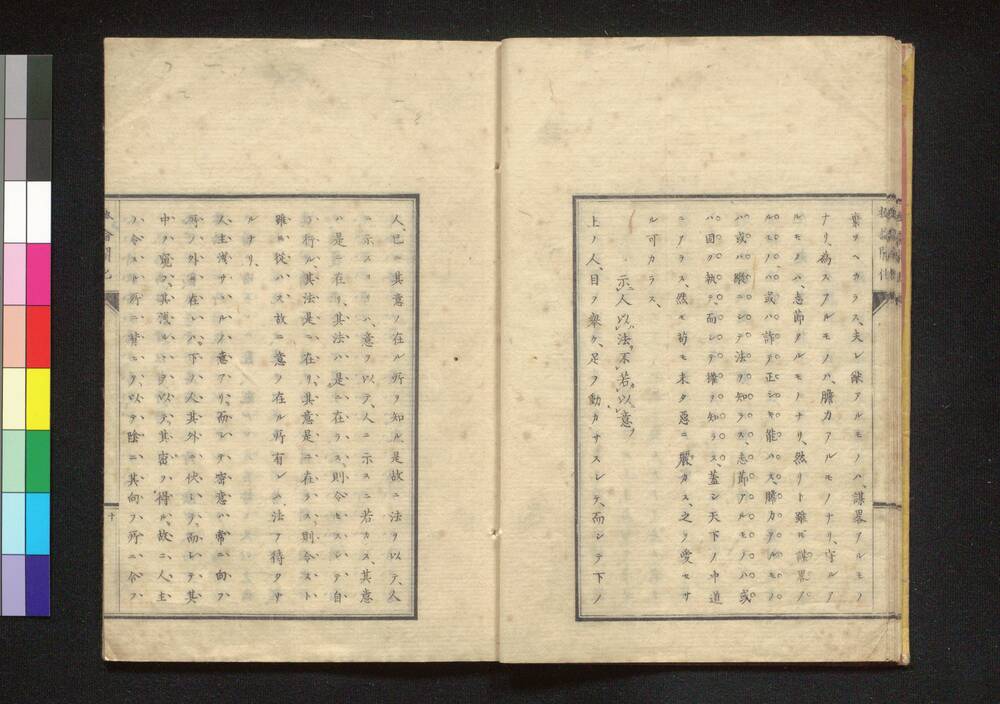 棄ツヘカラス、夫レ猷アルモノハ、謀畧アルモノ
ナリ、為スアルモノハ、膽力アルモノナリ、守ルア
ルモノハ、志節アルモノナリ、然リト雖ﾓ謀畧ノ
モノハ、或ハ詐テ正シキ能ハス、膽力アルモノ
ハ或ハ縱ニシテ法ヲ知ラス、志節アルモノハ、或
ハ固ク執テ、而シテ權ヲ知ラス、蓋シ天下ノ中道
ニアラス、然モ苟モ未タ惡ニ嚴カス、之ヲ愛セサ
ル可カラス、
示人以法、不若以意
上ノ人、目ヲ擧ケ、足ヲ動カサスシテ、而シテ下ノ
人、已ニ其意ノ在ル所ヲ知ル、是故ニ法ヲ以テ、人
ニ示スヨリハ、意ヲ以テ、人ニ示スニ若カス、其意
ハ是ニ在リ、其法ハ是ニ在ラス、則令セスシテ自
ラ行ル、其法是ニ在リ、其意是ニ在ラス、則令スト
雖ﾓ從ハス、故ニ意ヲ在ル所有レハ、法ヲ待タサ
ルナリ、
人主淺サハルノ意アリ、而シテ密意ハ常ニ向フ
所ノ外ニ在レハ、下ノ人其外ニ伏シテ、而シテ其
中ハ窺フ、其淺ルニヨツテ、其密ヲ得ル、故ニ、人主
ハ令スル所ニ背ク、以テ陰ニ其向フ所ニ令ヲ、
十